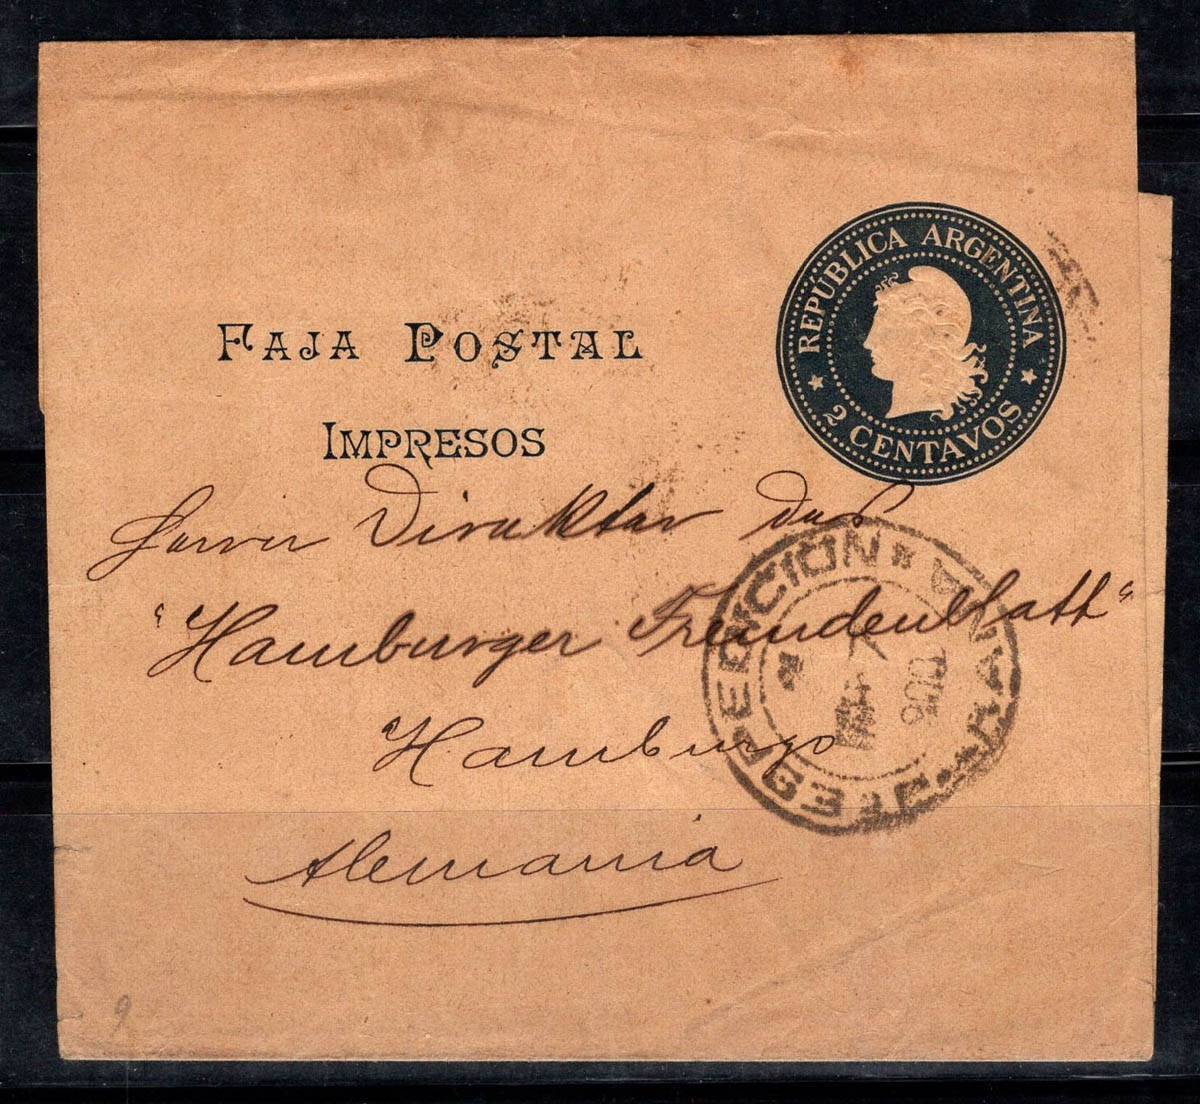 REPÚBLICA ARGENTINA
2 CENTAVOS
FAJA POSTAL
IMPRESOS
Herrn Direktor des
"Hamburger Fremdenblatt"
Hamburgo
Alemania
EXPEDICION
900
9